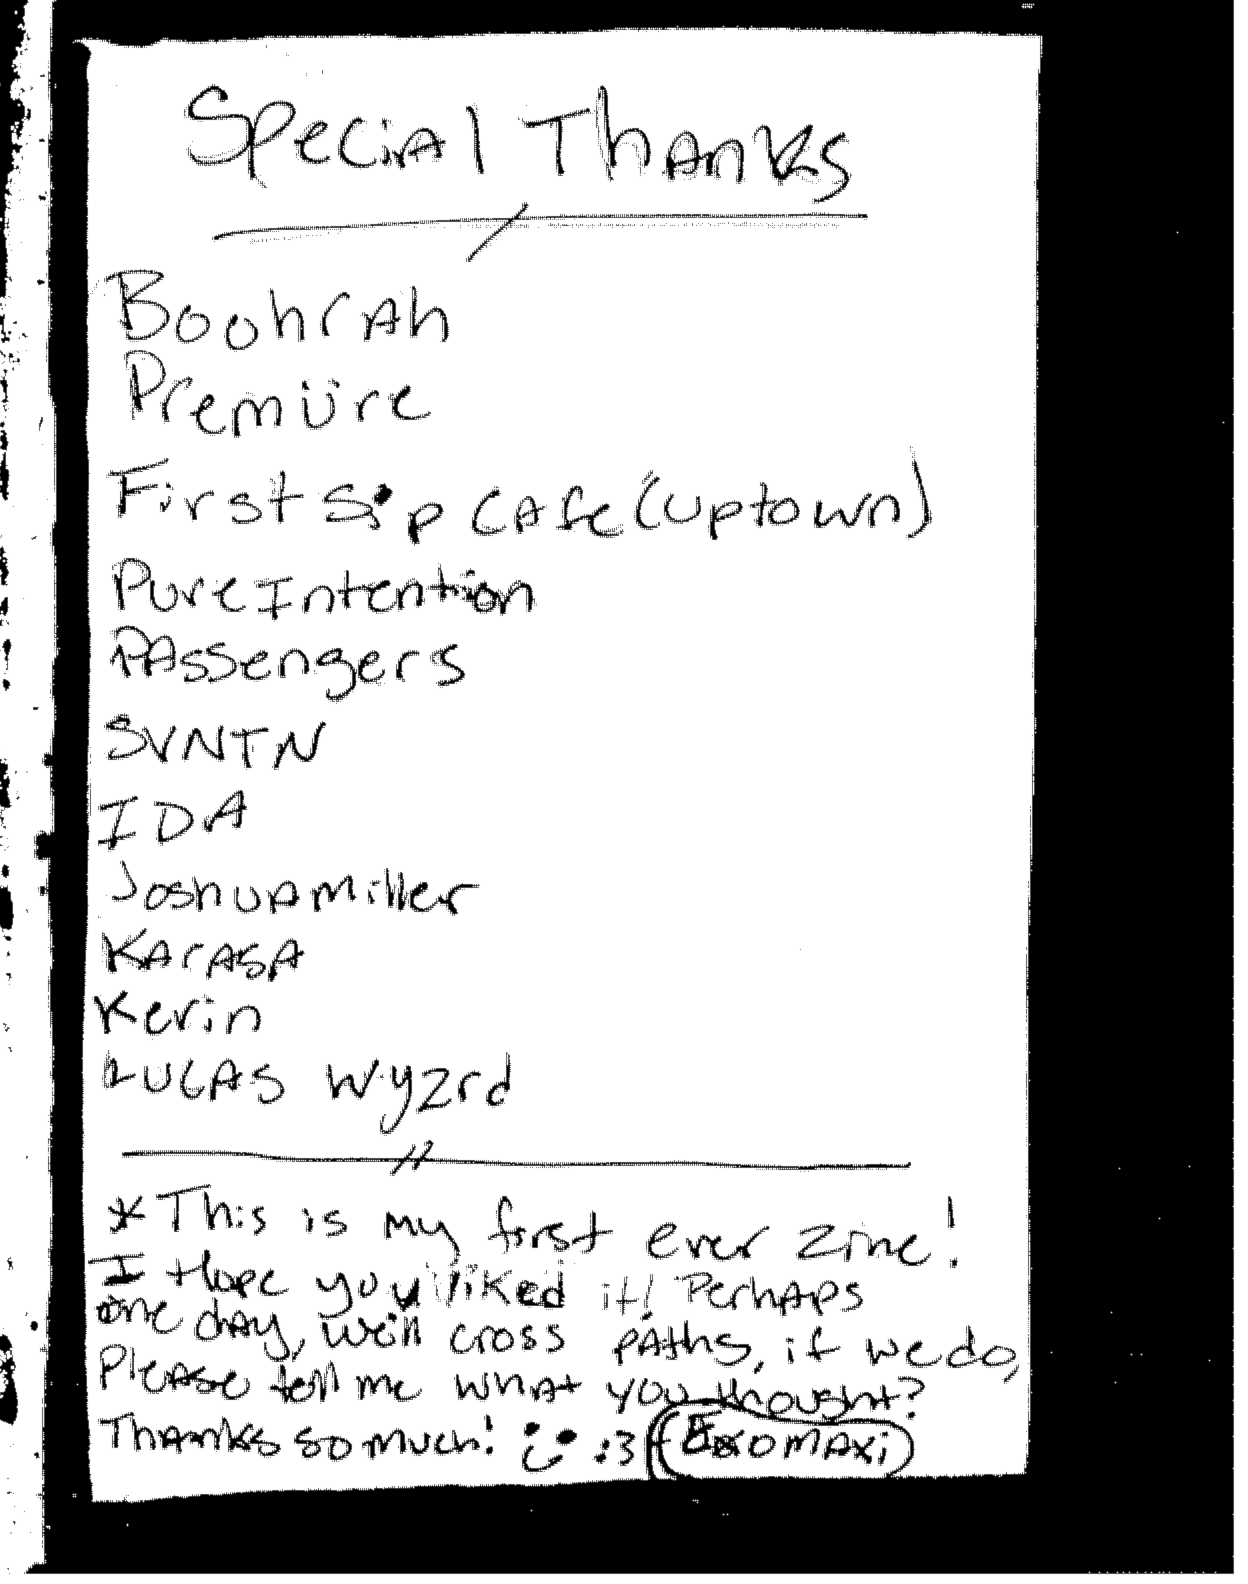 Special Thanks
Boohrah
Premiüre
First Sip Cafe (Uptown)
Pure Intention
Passengers
SVNTN
IDA
Joshua Miller
Karasa
Kerin
Lucas Wyzrd
* This is my first ever zine!
I Hope you liked it! Perhaps
one day, we'll cross paths, if we do,
Please tell me what you thought?
Thanks so much! :3 ExomAxi